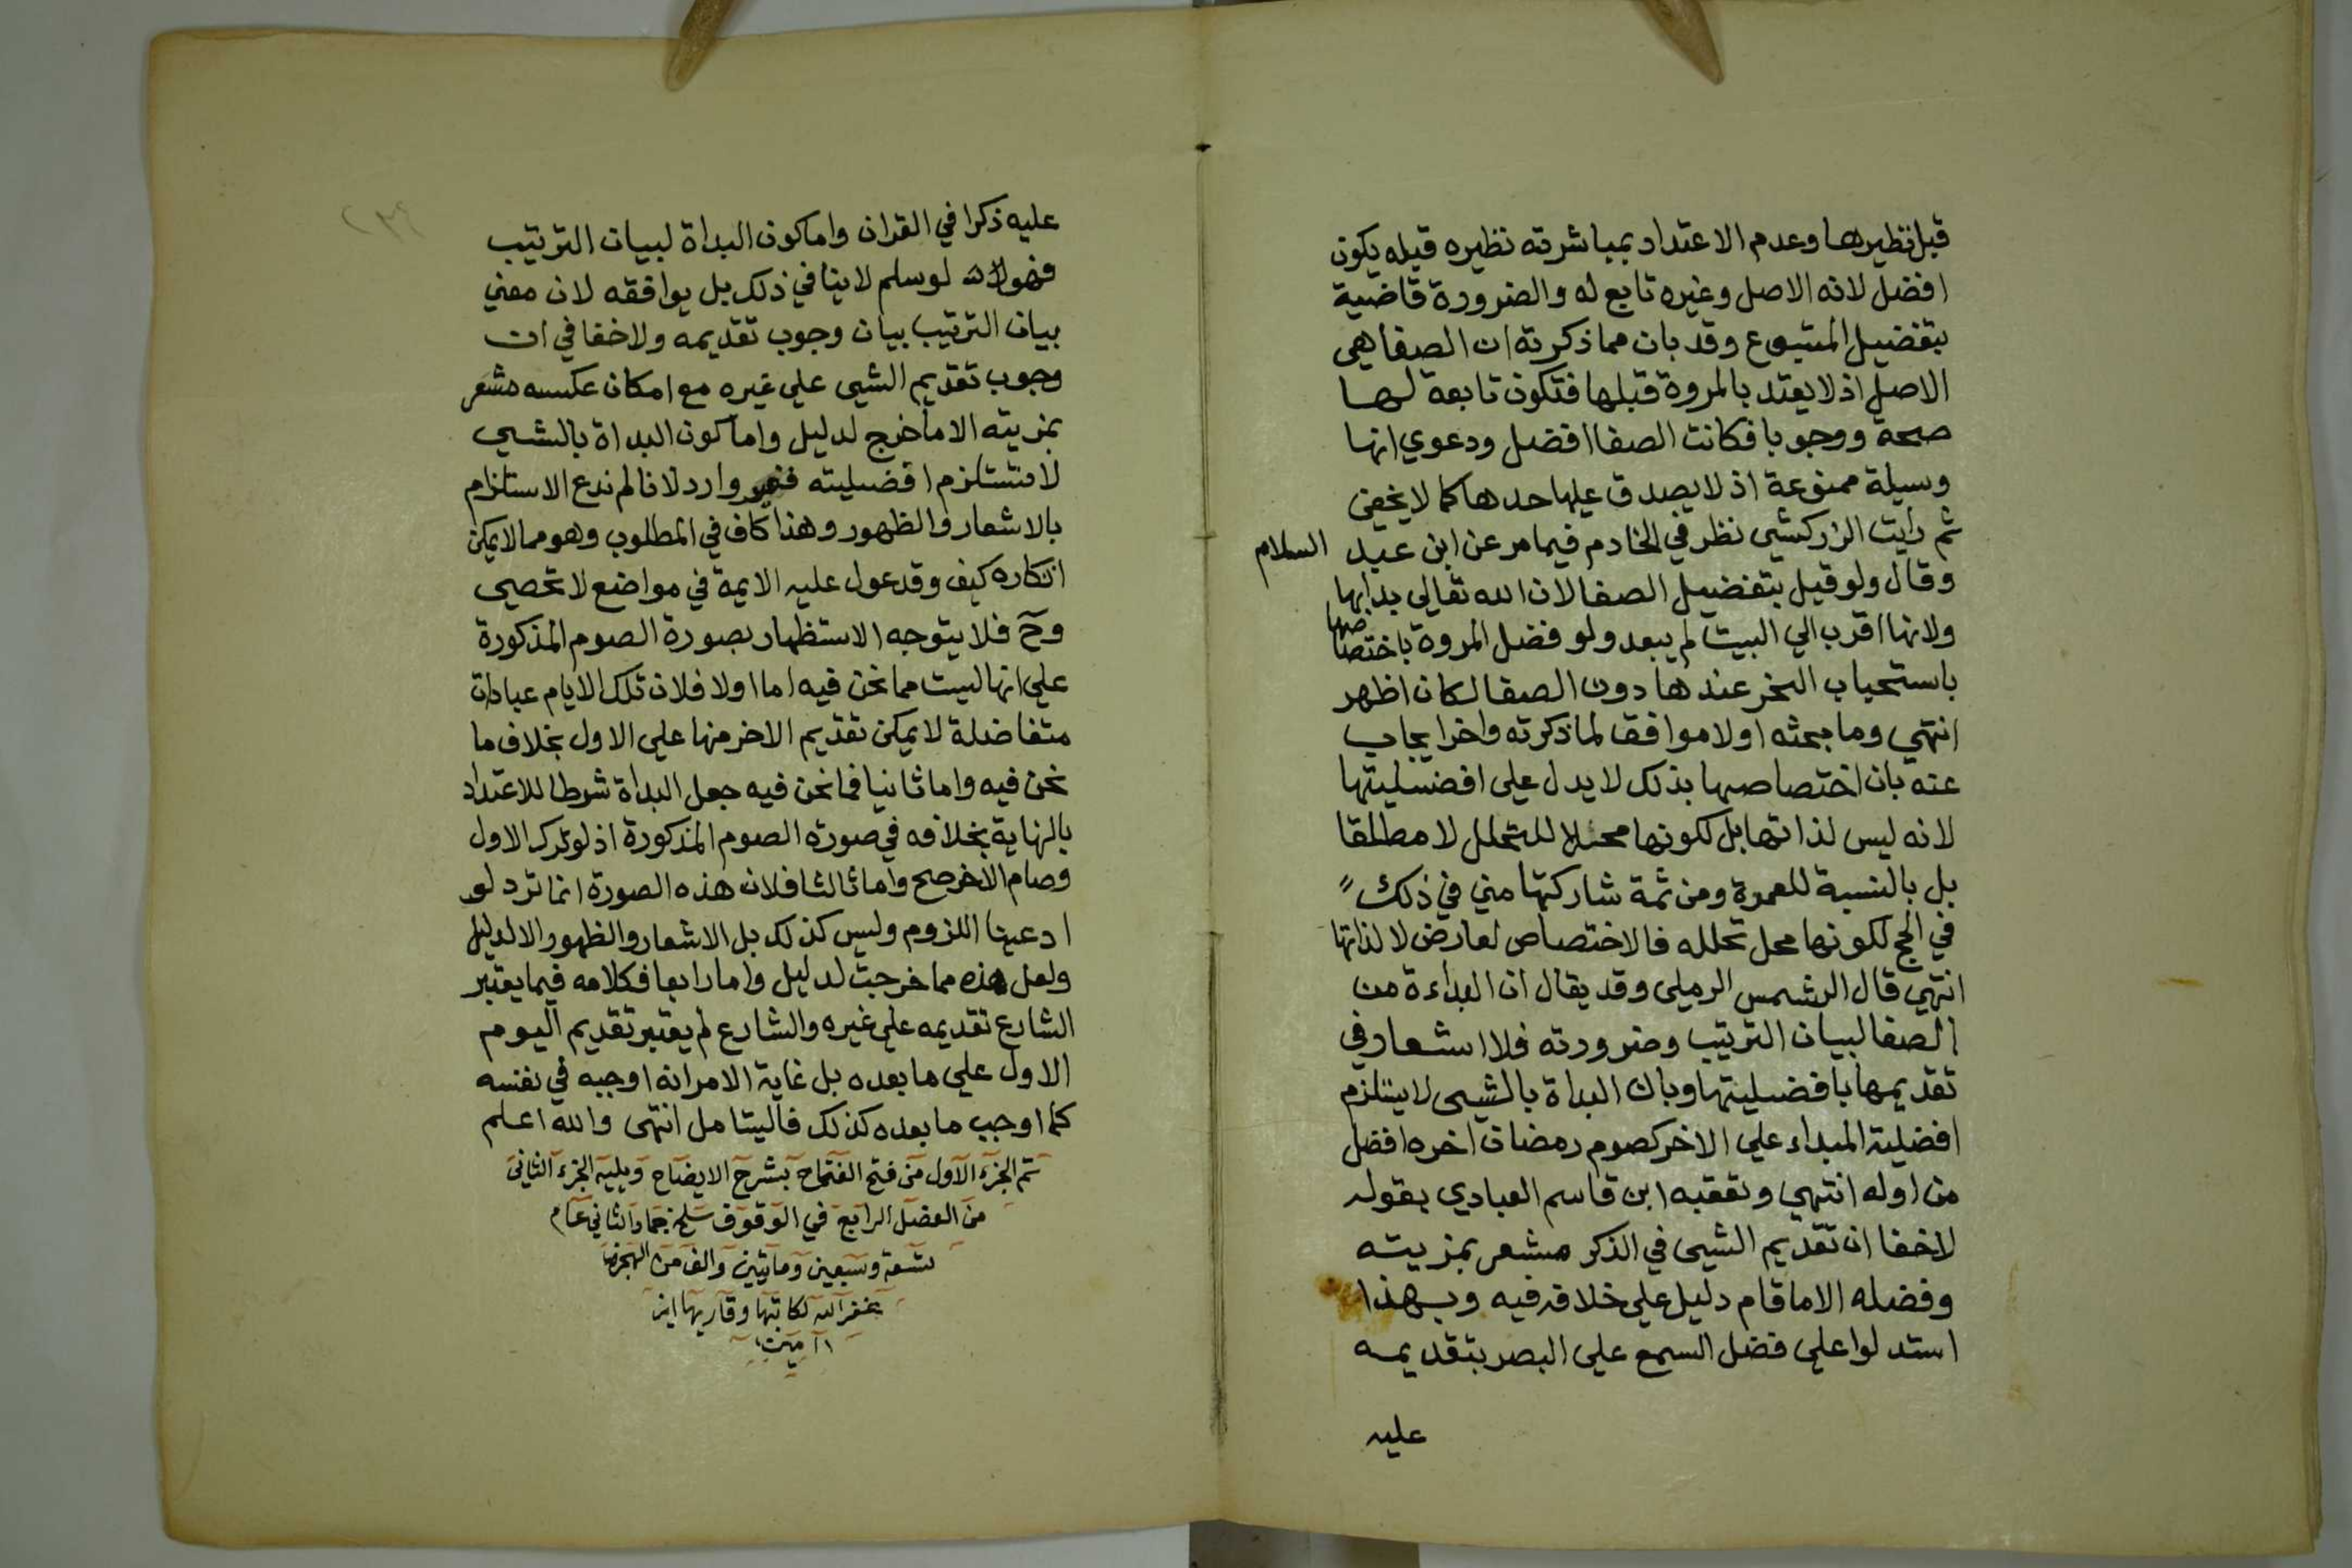 قبل نظيرها وعدم الاعتداد بمباشرته نظيره قبله يكون
افضل لانه الاصل وغيره تابع له والضرورة قاضية
بتفضيل المتبوع وقد بان مما ذكرته ان الصفا هي
الاصل اذ لا يعتد بالمروة قبلها فتكون تابعة لها
صحة ووجوبا فكانت الصفا افضل ودعوي انها
وسيلة ممنوعة اذ لا يصدق عليها حدها كما لا يخفي
ثم رأيت الزركشي نظر في الخادم فيما مر عن ابن عبد السلام
وقال ولو قيل بتفضيل الصفا لان الله تعالي بدا بها
ولانها اقرب الي البيت لم يبعد ولو فضل المروة باختصاصها
باستحباب النحر عندها دون الصفا لكان اظهر
انتهي وما بحثه اولا موافق لما ذكرته واخرا يجاب
عنه بان اختصاصها بذلك لا يدل علي افضليتها
لانه ليس لذاتها بل لكونها محلا للتحلل لا مطلقا
بل بالنسبة للعمرة ومن ثمة شاركتها مني في ذلك
في الحج لكونها محل تحلله فالاختصاص لعارض لا لذاتها
انتهي قال الشمس الرملي وقد يقال ان البداءة من
الصفا لبيان الترتيب وضرورته فلا اشعار في
تقديمها بافضليتها وبان البداة بالشيى لا يستلزم
افضلية المبداء علي الاخر كصوم رمضان اخره افضل
من اوله انتهي وتعقبه ابن قاسم العبادي بقوله
لا خفا ان تقديم الشيى في الذكر مشعر بمزيته
وفضله الا ما قام دليل علي خلافه فيه وبهذا
استدلوا علي فضل السمع علي البصر بتقديمه
عليه
عليه ذكرا في القران واما كون البداة لبيان الترتيب
فهو لو سلم لا ينافي ذلك بل يوافقه لان معني
بيان الترتيب بيان وجوب تقديمه ولا خفا في ان
وجوب تقديم الشيى علي غيره مع امكان عكسه مشعر
بمزيته الا ما خرج لدليل واما كون البداة بالشيى
لا تستلزم افضليته فغير وارد لانا لم ندع الاستلزام
بالاشعار والظهور وهذا كاف في المطلوب وهو مما لا يمكن
انكاره كيف وقد عول عليه الايمة في مواضع لا تحصي
وح فلا يتوجه الاستظهار بصورة الصوم المذكورة
علي انها ليست مما نحن فيه اما اولا فلان تلك الايام عبادات
متفاضلة لا يمكن تقديم الاخر منها علي الاول بخلاف ما
نحن فيه واما ثانيا فما نحن فيه جعل البداة شرطا للاعتداد
بالنهاية بخلافه في صورة الصوم المذكورة اذ لو ترك الاول
وصام الاخر صح واما ثالثا فلان هذه الصورة انما ترد لو
ادعينا اللزوم وليس كذلك بل الاشعار والظهور الا لدليل
ولعل هذه مما خرجت لدليل واما رابعا فكلامه فيما يعتبر
الشارع تقديمه علي غيره والشارع لم يعتبر تقديم اليوم
الاول علي ما بعده بل غاية الامر انه اوجبه في نفسه
كما اوجب ما بعده كذلك فاليتامل انتهى والله اعلم
تم الجزء الاول من فتح الفتاح بشرح الايضاح ويليه الجزء الثاني
من الفصل الرابع في الوقوف سلخ جماد الثاني عام
تسعة وسبعين ومايتين والف من الهجرة
يغفر الله لكاتبها وقاريها
امين